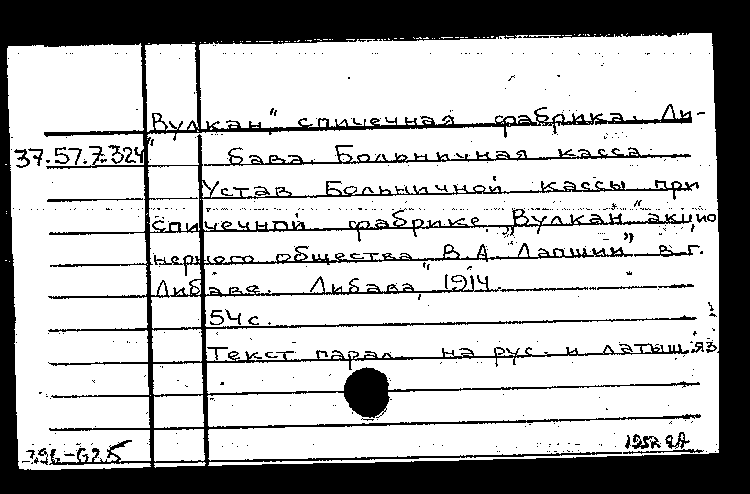 „Вулкан", спичечная фабрика. Ли-
37.57.7.324
бава. Больничная касса.
Устав Больничной кассы при
спичечной фабрике „Вулкан" акцио
нерного общества „В.А. Лапшин" в г.
Либаве. Либава, 1914.
54 с.
Текст парал. на рус. и латыш. яз.
396-62.5